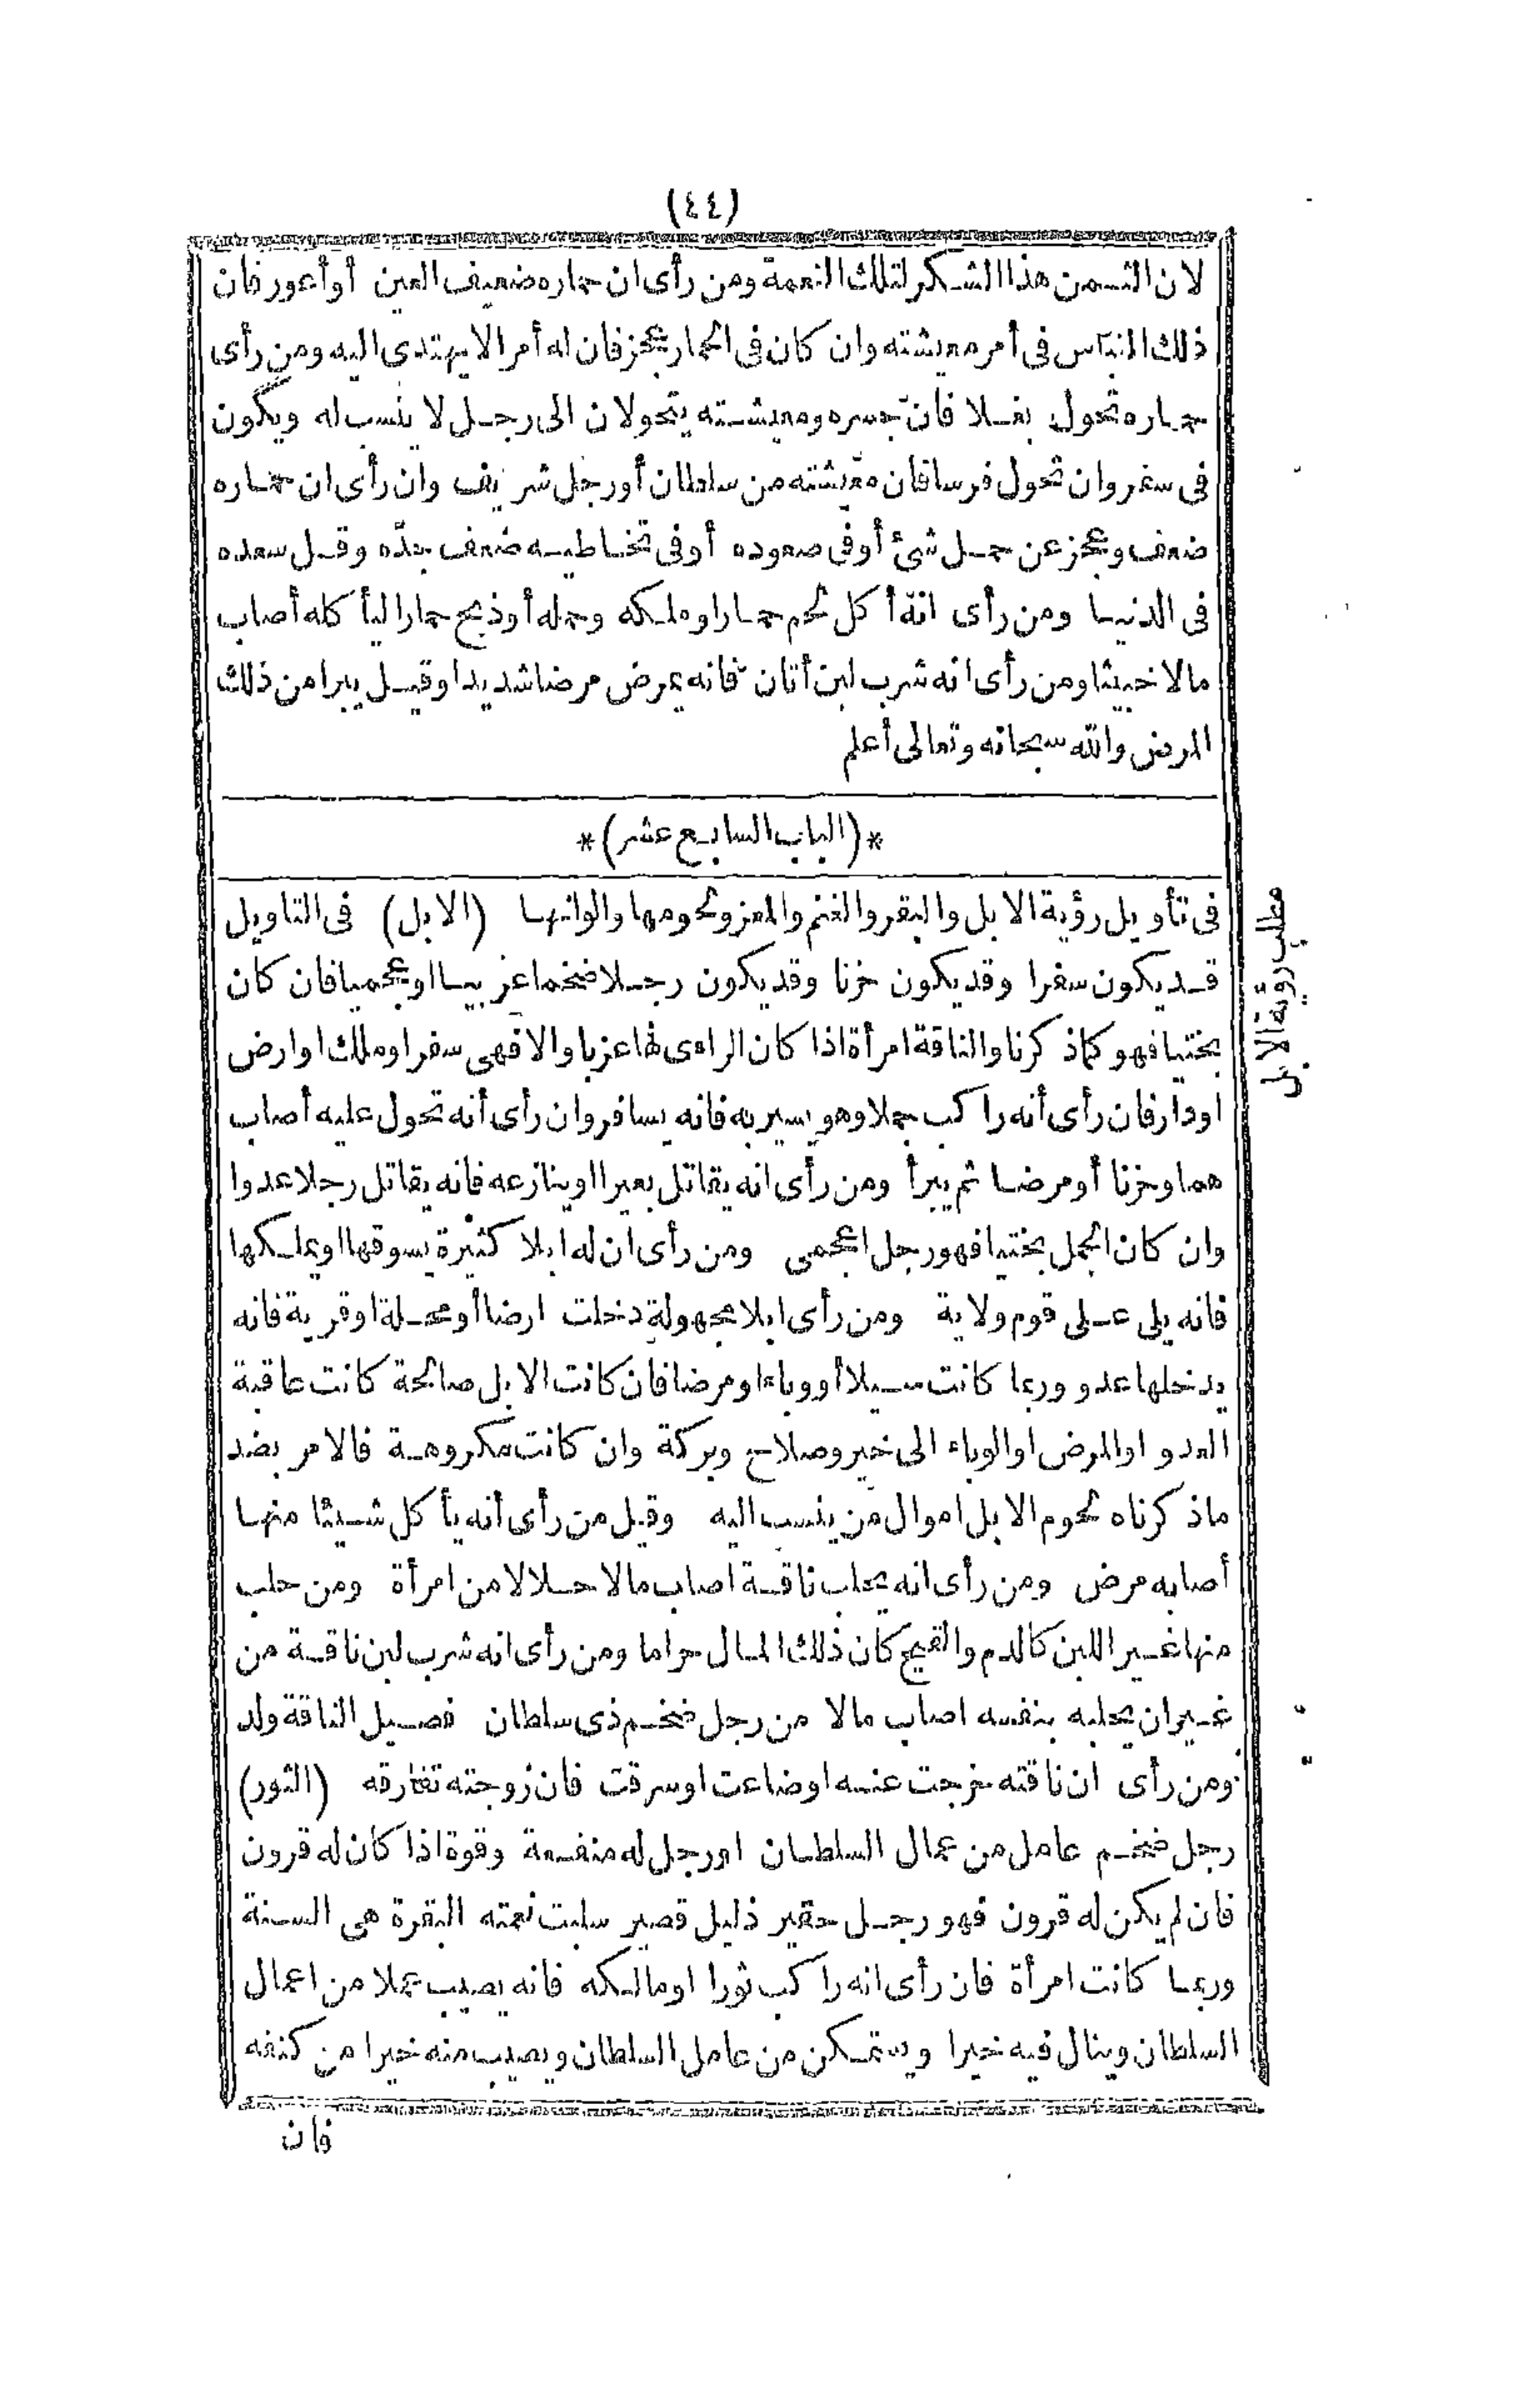 (٤٤)
لان الثـمن هذا الشـكر لتلك النعمة ومن رأى ان حماره ضعيف العين أو أعور فان
ذلك التباس فى أمر معيشته وان كان فى الحمار عجز فان له أمر الا يهتدى اليه ومن رأى
حماره تحول بغلا فان جسره ومعيشته يتحولان الى رجل لا ينسب له ويكون
فى سفر وان تحول فرسا فان معيشته من سلطان أو رجل شريف وان رأى ان حماره
ضعف وعجز عن حمل شئ أو فى صعوده أو فى تخاطيه ضعف جدّه وقل سعده
فى الدنيا ومن رأى انه أكل لحم حمار او ملكه وحمله أو ذبح حمارا ليأكله أصاب
مالا خبيثا ومن رأى انه شرب لبن أتان فانه يمرض مرضا شديدا وقيل يبرا من ذلك
المرض والله سبحانه وتعالى أعلم
*(الباب السابع عشر)*
فى تأويل رؤية الابل والبقر والغنم والمعز ولحومها والوانها (الابل) فى التاويل
قد يكون سفرا وقد يكون حزنا وقد يكون رجلا ضخما عربيا او عجميا فان كان
بختيا فهو كما ذكرنا والناقة امرأة اذا كان الراءى لها عزبا والا فهى سفر او ملك او ارض
او دار فان رأى أنه راكب جملا وهو يسير به فانه يسافر وان رأى أنه تحول عليه أصاب
هما وحزنا أو مرضا ثم يبرأ ومن رأى انه يقاتل بعيرا او ينازعه فانه يقاتل رجلا عدوا
وان كان الجمل بختيا فهو رجل اعجمى ومن رأى ان له ابلا كثيرة يسوقها او يملكها
فانه يلى على قوم ولاية ومن رأى ابلا مجهولة دخلت ارضا أو محلة او قرية فانه
يدخلها عدو وربما كانت سيلا أو وباء او مرضا فان كانت الابل صالحة كانت عاقبة
العدو او المرض او الوباء الى خير وصلاح وبركة وان كانت مكروهة فالامر بضد
ماذكرناه لحوم الابل اموال من ينسب اليه وقيل من رأى أنه يأكل شيئا منها
أصابه مرض ومن رأى انه يحلب ناقة اصاب مالا حلالا من امرأة ومن حلب
منها غير اللبن كالدم والقيح كان ذلك المال حراما ومن رأى انه شرب لبن ناقة من
غير ان يحلبه بنفسه اصاب مالا من رجل ضخم ذى سلطان فصيل الناقة ولد
ومن رأى ان ناقته خرجت عنه او ضاعت او سرقت فان زوجته تفارقه (الثور)
رجل ضخم عامل من عمال السلطان او رجل له منفعة وقوة اذا كان له قرون
فان لم يكن له قرون فهو رجل حقير ذليل قصير سلبت نعمته البقرة هى السنة
وربما كانت امرأة فان رأى انه راكب ثورا او مالكه فانه يصيب عملا من اعمال
السلطان وينال فيه خيرا ويتمكن من عامل السلطان ويصيب منه خيرا من كنفه
فان
مطلب رؤية الابل